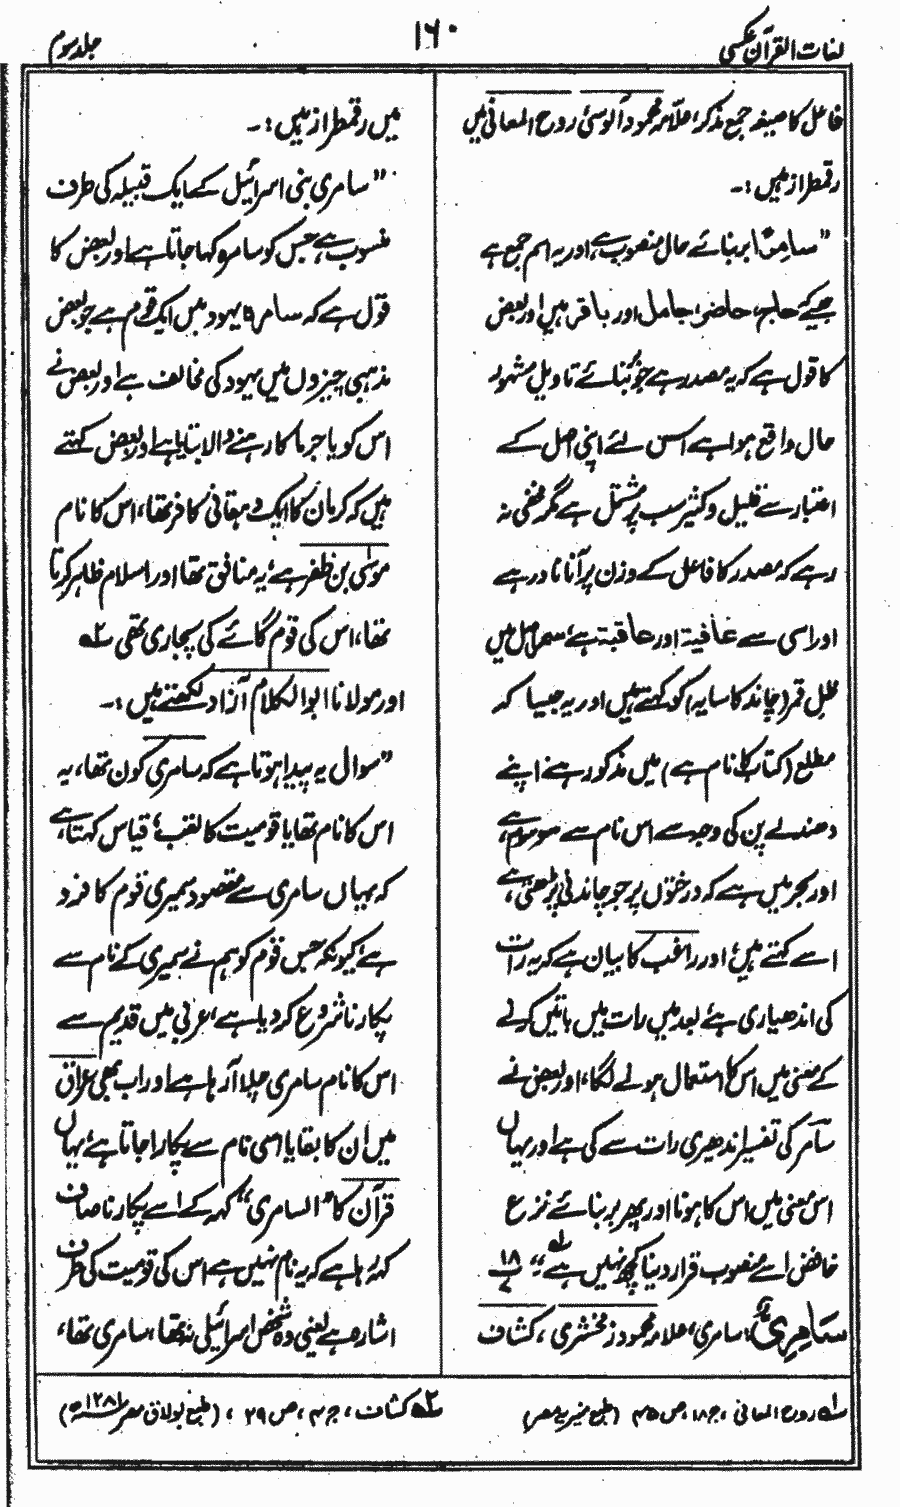 لغات القرآن عکسی
۱۶۰
جلد سوم
فاعل کا صیغہ جمع مذکر، علامہ محمود آلوسیؒ روح المعانی میں
رقمطراز ہیں :۔
”سامِرًا بر بنائے حال منصوب ہے، اور یہ اسم جمع ہے
جیسے کہ حاج، حاضر، جامل اور باقر ہیں، اور بعض
کا قول ہے کہ یہ مصدر ہے جو بنائے تاویل مشہور
حال واقع ہوا ہے اس لئے اپنی اصل کے
اعتبار سے قلیل و کثیر سب پر مشتمل ہے مگر مخفی نہ
رہے کہ مصدر کا فاعل کے وزن پر آنا نادر ہے
اور اسی سے عافیۃ اور عاقبۃ ہے، سمر اصل میں
ظل قمر (چاند کا سایہ) کو کہتے ہیں اور یہ جیسا کہ
مطلع (کتاب کا نام ہے) میں مذکور ہے اپنے
دھندلے پن کی وجہ سے اس نام سے موسوم ہے،
اور بحر میں ہے کہ درختوں پر جو چاندنی پڑھتی ہے،
اسے کہتے ہیں، اور راغب کا بیان ہے کہ یہ رات
کی اندھیاری ہے، بعد میں رات میں باتیں کرنے
کے معنی میں اس کا استعمال ہونے لگا، اور بعض نے
سآمر کی تفسیر اندھیری رات سے کی ہے اور یہاں
اس معنی میں اس کا ہونا اور پھر بر بنائے نزع
خافض اسے منصوب قرار دینا کچھ نہیں ہے“؎۱ ۱۸
سَامِرِیّ : سامری، علامہ محمود زمخشری، کشاف
میں رقمطراز ہیں :۔
”سامری بنی اسرائیل کے ایک قبیلہ کی طرف
منسوب ہے جس کو سامرہ کہا جاتا ہے اور بعض کا
قول ہے کہ سامرہ یہود میں ایک قوم ہے جو بعض
مذہبی چیزوں میں یہود کی مخالف ہے اور بعض نے
اس کو باجرما کا رہنے والا بتایا ہے اور بعض کہتے
ہیں کہ کرمان کا ایک دہقانی کافر تھا، اس کا نام
موسٰی بن ظفر ہے، یہ منافق تھا اور اسلام ظاہر کرتا
تھا، اس کی قوم گائے کی پجاری تھی ؎۲
اور مولانا ابوالکلام آزاد لکھتے ہیں :۔
”سوال یہ پیدا ہوتا ہے کہ سامری کون تھا، یہ
اس کا نام تھا یا قومیت کا لقب؟ قیاس کہتا ہے،
کہ یہاں سامری سے مقصود سمیری قوم کا فرد
ہے، کیونکہ جس قوم کو ہم نے سمیری کے نام سے
پکارنا شروع کر دیا ہے، عربی میں قدیم سے
اس کا نام سامری چلا آرہا ہے اور اب بھی عراق
میں ان کا بقایا اسی نام سے پکارا جاتا ہے، یہاں
قرآن کا ”السامری“ کہہ کے اسے پکارنا صاف
کہہ رہا ہے کہ یہ نام نہیں ہے اس کی قومیت کی طرف
اشارہ ہے یعنی وہ شخص اسرائیلی نہ تھا، سامری تھا،
؎۱ روح المعانی، ج۱۸، ص۴۵ (طبع منیریہ مصر)
؎۲ کشاف، ج۳، ص۲۹، (طبع بولاق مصر ۱۲۸۱ھ)